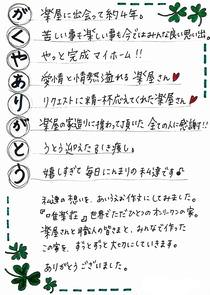 が 楽屋に出会って約4年。
く 苦しい事も楽しい事も今ではみんな良い思い出。
や やっと完成マイホーム!!
あ 愛情と情熱溢れる楽屋さん♥
り リクエストに精一杯応えてくれた楽屋さん♥
が 楽屋の家造りに携わって頂いた全ての人に感謝!!
と うとう迎えた引き渡し。
う 嬉しすぎて毎日にんまりの私達です♪
私達の想いを、あいうえお作文にしてみました。
『唯楽荘』世界でただひとつのオンリーワンの家。
楽屋さんと職人の皆さまと、みんなで作った
この家を、ずっとずっと大切にしていきます。
ありがとうございました。